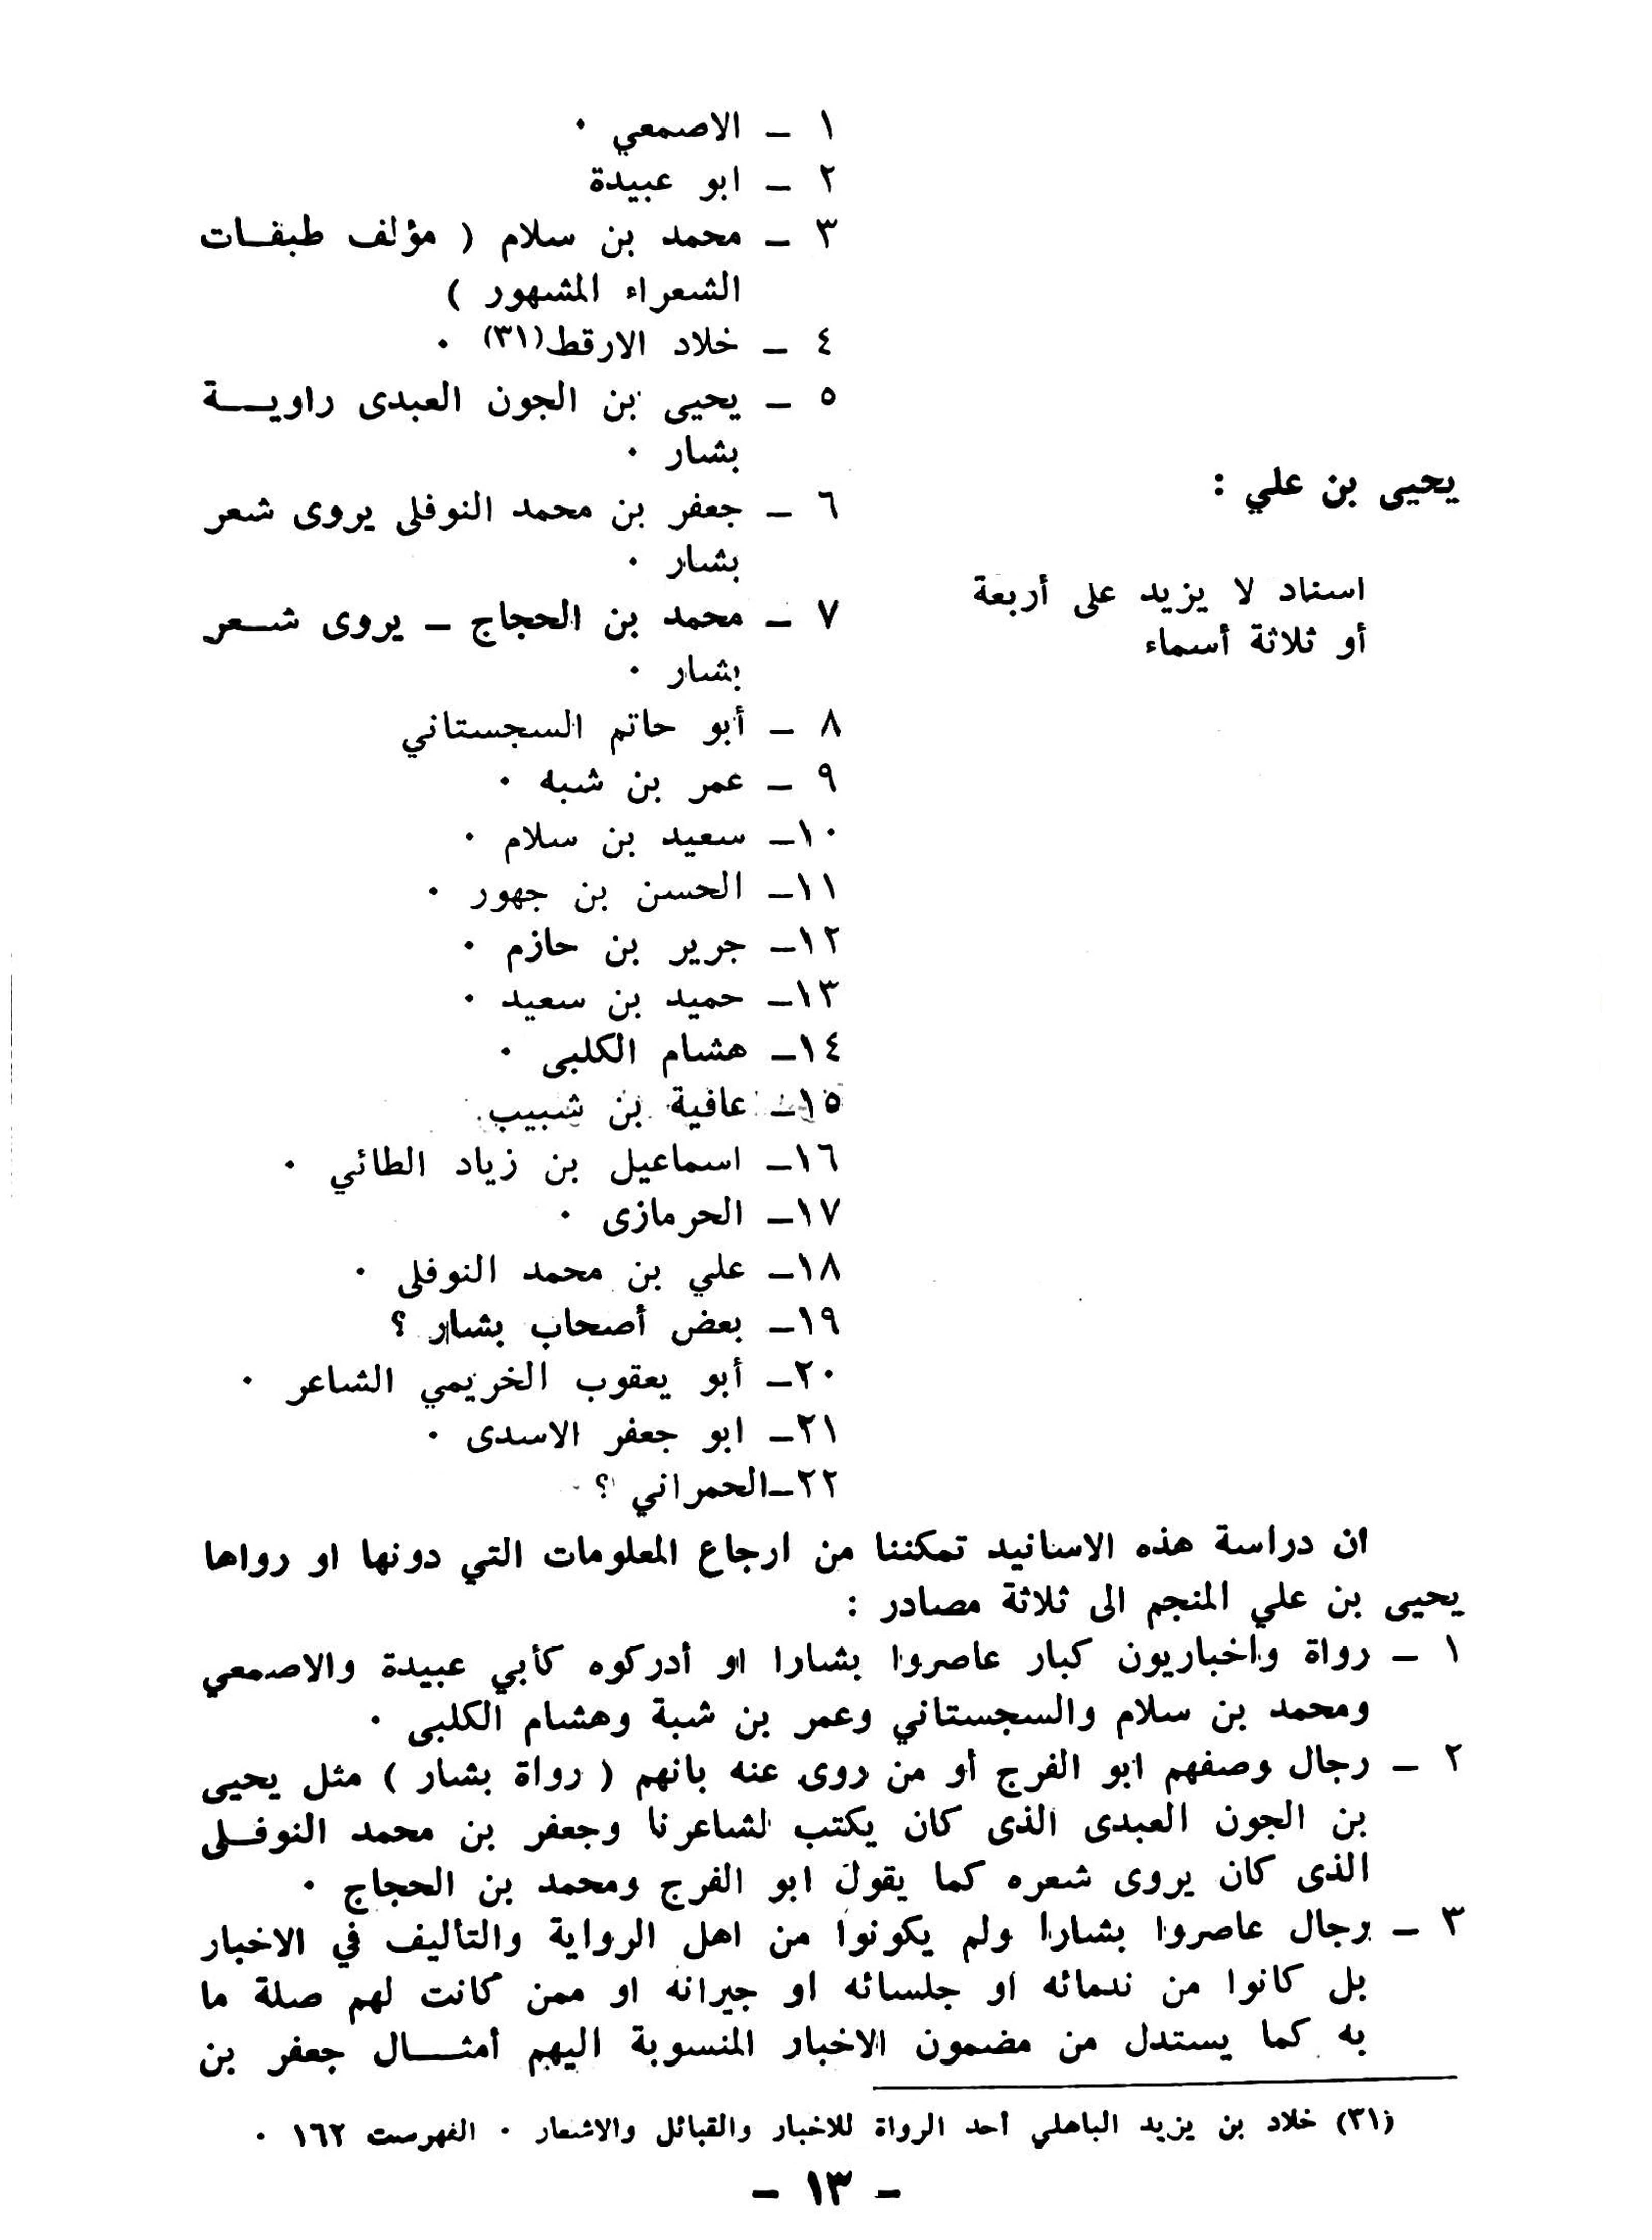 يحيى بن علي :
اسناد لا يزيد على أربعة
أو ثلاثة أسماء
١ ـ الاصمعي ٠
٢ ـ ابو عبيدة
٣ ـ محمد بن سلام ( مؤلف طبقـات
الشعراء المشهور )
٤ ـ خلاد الارقط(٣١) ٠
٥ ـ يحيى بن الجون العبدى راويـــة
بشار ٠
٦ ـ جعفر بن محمد النوفلى يروى شعر
بشار ٠
٧ ـ محمد بن الحجاج ـ يروى شـعر
بشار ٠
٨ ـ أبو حاتم السجستاني
٩ ـ عمر بن شبه ٠
١٠ـ سعيد بن سلام ٠
١١ـ الحسن بن جهور ٠
١٢ـ جرير بن حازم ٠
١٣ـ حميد بن سعيد ٠
١٤ـ هشام الكلبى ٠
١٥ـ عافية بن شبيب
١٦ـ اسماعيل بن زياد الطائي ٠
١٧ـ الحرمازى ٠
١٨ـ علي بن محمد النوفلى ٠
١٩ـ بعض أصحاب بشار ؟
٢٠ـ أبو يعقوب الخريمي الشاعر ٠
٢١ـ ابو جعفر الاسدى ٠
٢٢ـالحمراني ؟
ان دراسة هذه الاسانيد تمكننا من ارجاع المعلومات التي دونها او رواها
يحيى بن علي المنجم الى ثلاثة مصادر :
١ ـ رواة واخباريون كبار عاصروا بشارا او أدركوه كأبي عبيدة والاصمعي
ومحمد بن سلام والسجستاني وعمر بن شبة وهشام الكلبى ٠
٢ ـ رجال وصفهم ابو الفرج أو من روى عنه بانهم ( رواة بشار ) مثل يحيى
بن الجون العبدى الذى كان يكتب لشاعرنا وجعفر بن محمد النوفـلى
الذى كان يروى شعره كما يقول ابو الفرج ومحمد بن الحجاج ٠
٣ ـ رجال عاصروا بشارا ولم يكونوا من اهل الرواية والتأليف في الاخبار
بل كانوا من ندمائه او جلسائه او جيرانه او ممن كانت لهم صلة ما
به كما يستدل من مضمون الاخبار المنسوبة اليهم أمثـــال جعفر بن
(٣١) خلاد بن يزيد الباهلي أحد الرواة للاخبار والقبائل والاشعار ٠ الفهرست ١٦٢ ٠
ـ ١٣ ـ